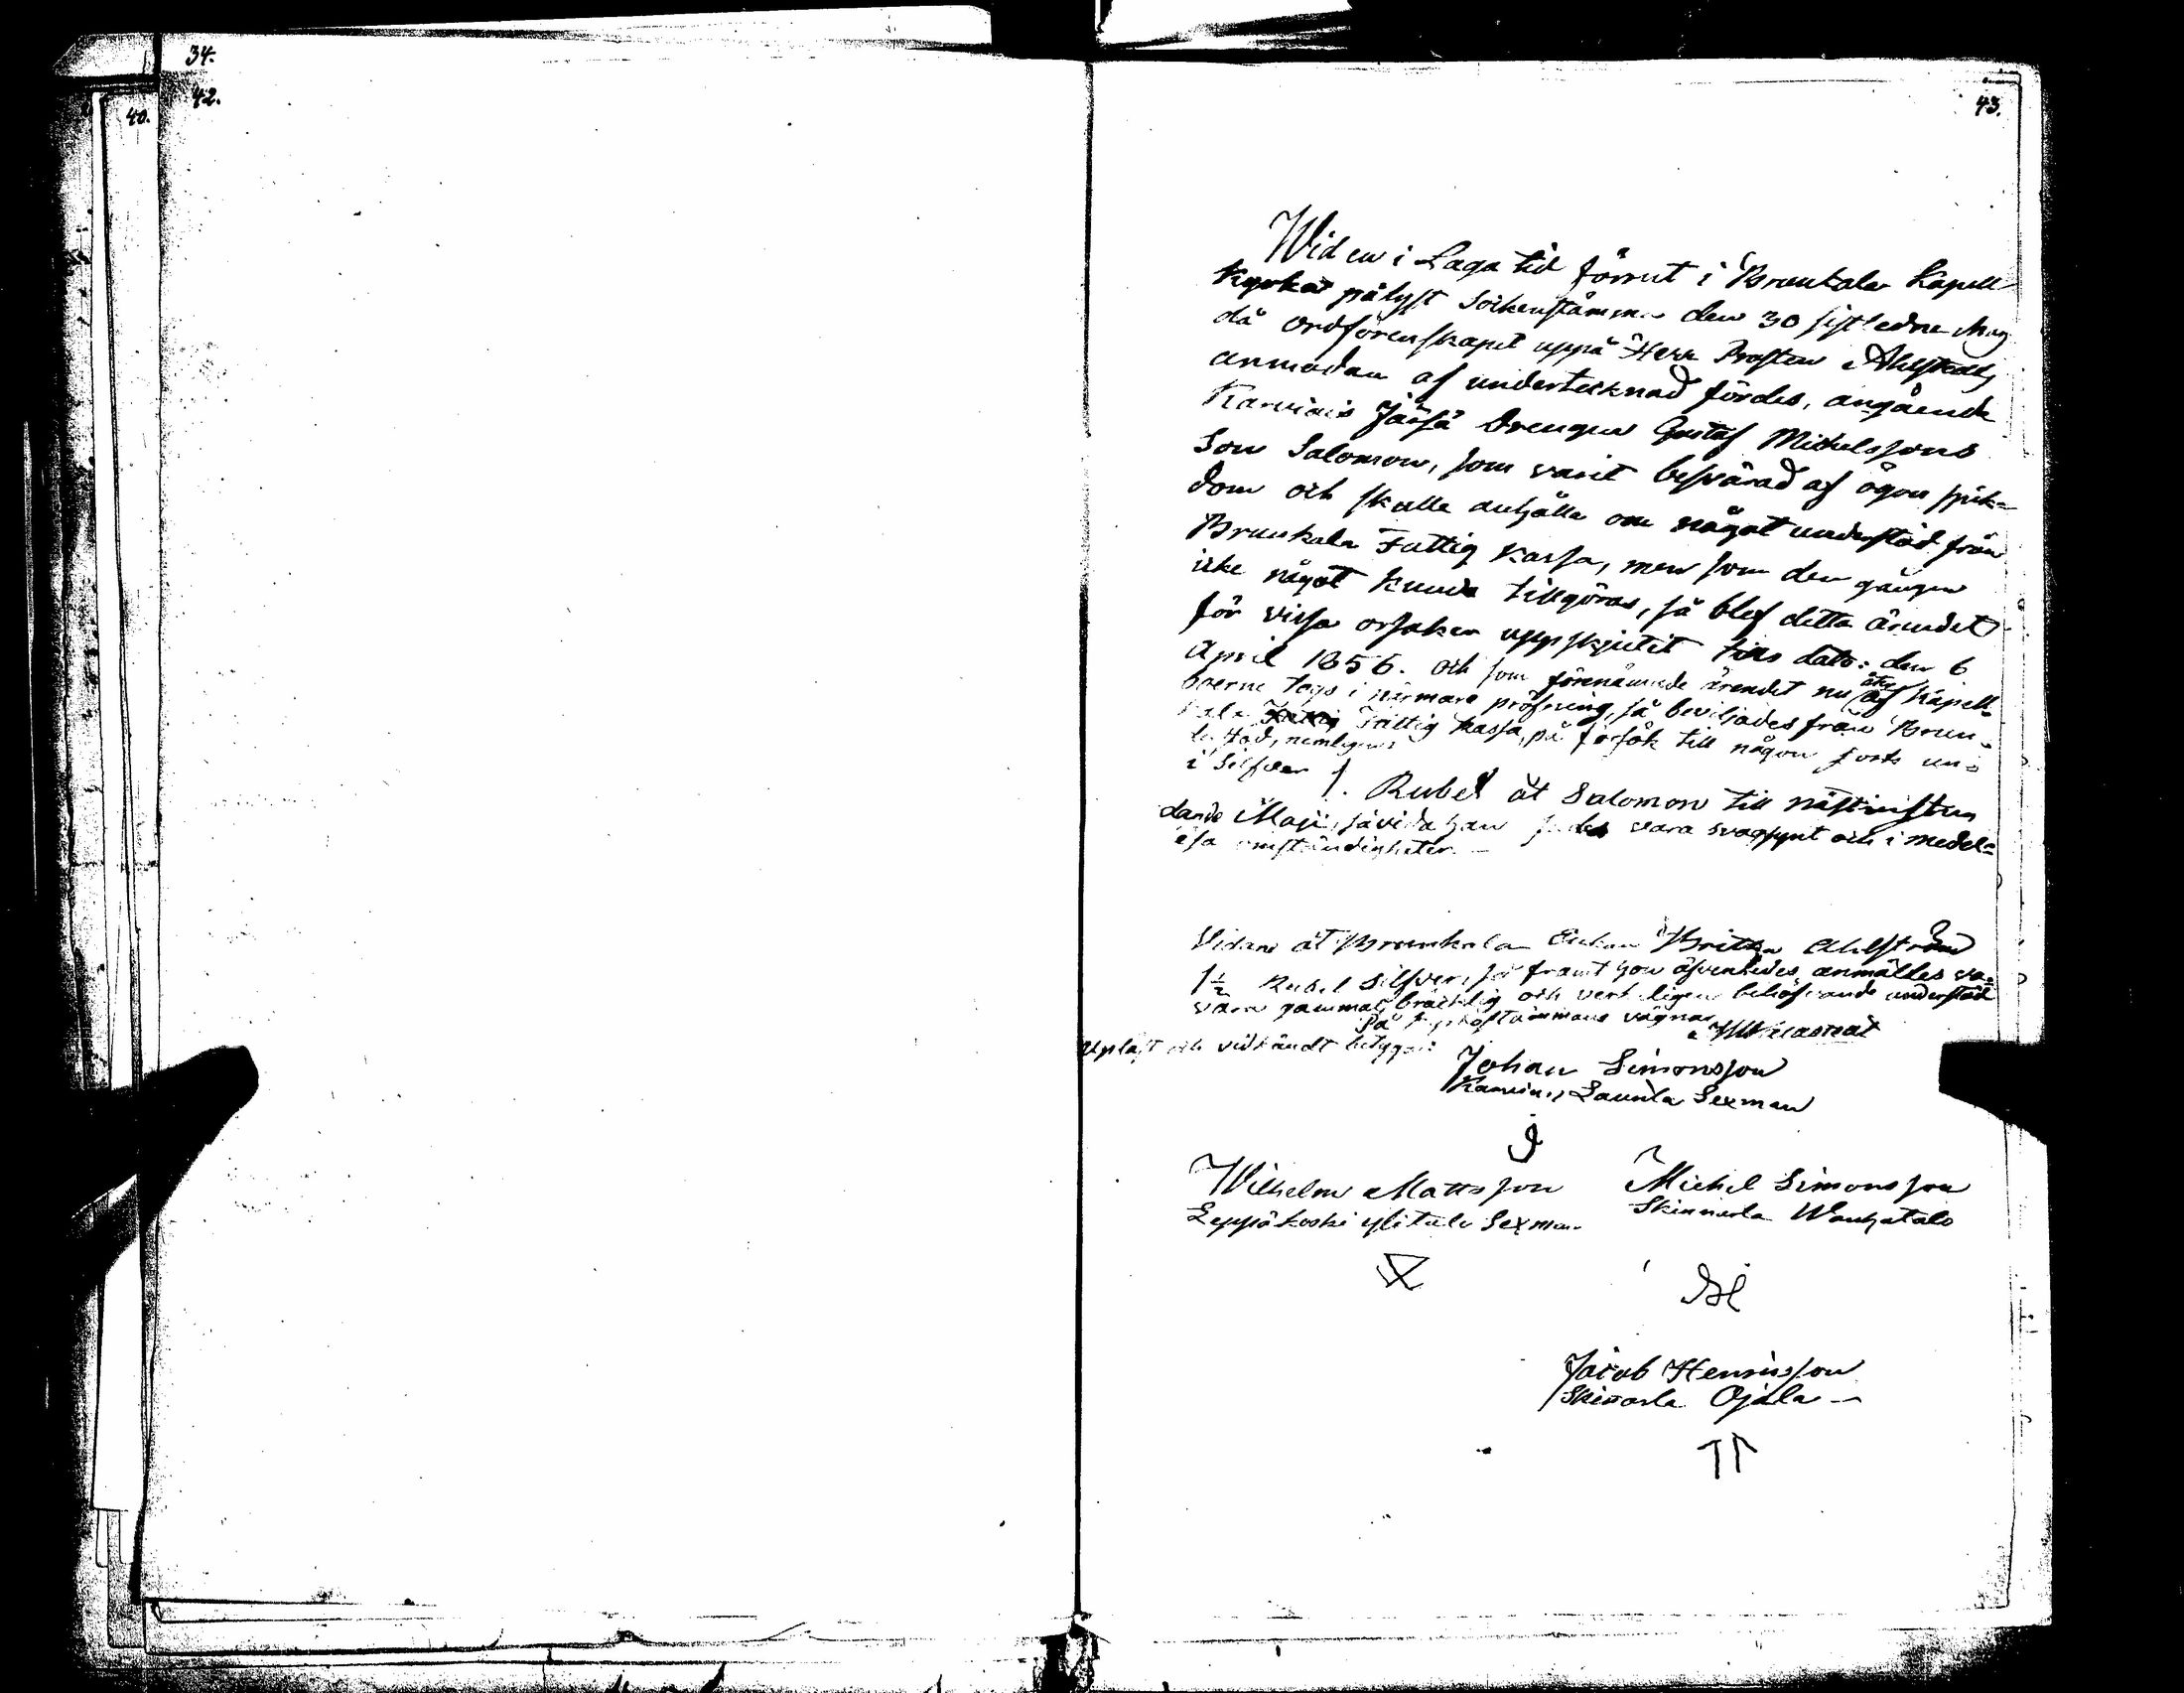 34.
42.
40.
43.
Wid en i Laga tid förrut i Brunkala Kapell
Kyrka pålyst Sockenstämma den 30 sistledne Mars
då Ordförenskapet uppå Herr Prosten Ahlstedts
anmodan af undertecknad fördes, angående
Karviais Jässä Drengen Gustaf Michelssons
Son Salomon, som varit besvärad af ögon sjuk-
dom och skulle anhålla om något understöd från
Brunkala Fattig Kassa, men som den gången
icke något kunde tillgöras, så blef detta ärendet
för vissa orsaker uppskjutit tills dato: den 6
April 1856. Och som förenämnde ärendet nu åter af Kapell-
boerne togs i närmare pröfning, så beviljades från Brun-
kala Fattig Kassa, på försök till någon sorts un-
derstöd, nemligen:
i Silfver 1. Rubel åt Salomon till nästinstun
dande Maji, såvida han vara svagsynt och i medel-
lösa omständigheter. —
Vidare åt Brunkala Enkan Britta Ahlström
1½ Rubel Silfver, så framt hon äfvenledes anmältes va-
vara gammal, bräcklig och verkeligen behöfvande understöd
På vägnar
Upläst och vidkändt betygas:
Johan Simonsson
Karviais Launla Sexman
Wilhelm Mattsson Michel Simonsson
Leppäkoski ylitalo Sexman Skinnarla Wanhatalo
Jacob Henricsson
Skinarla Ojala —